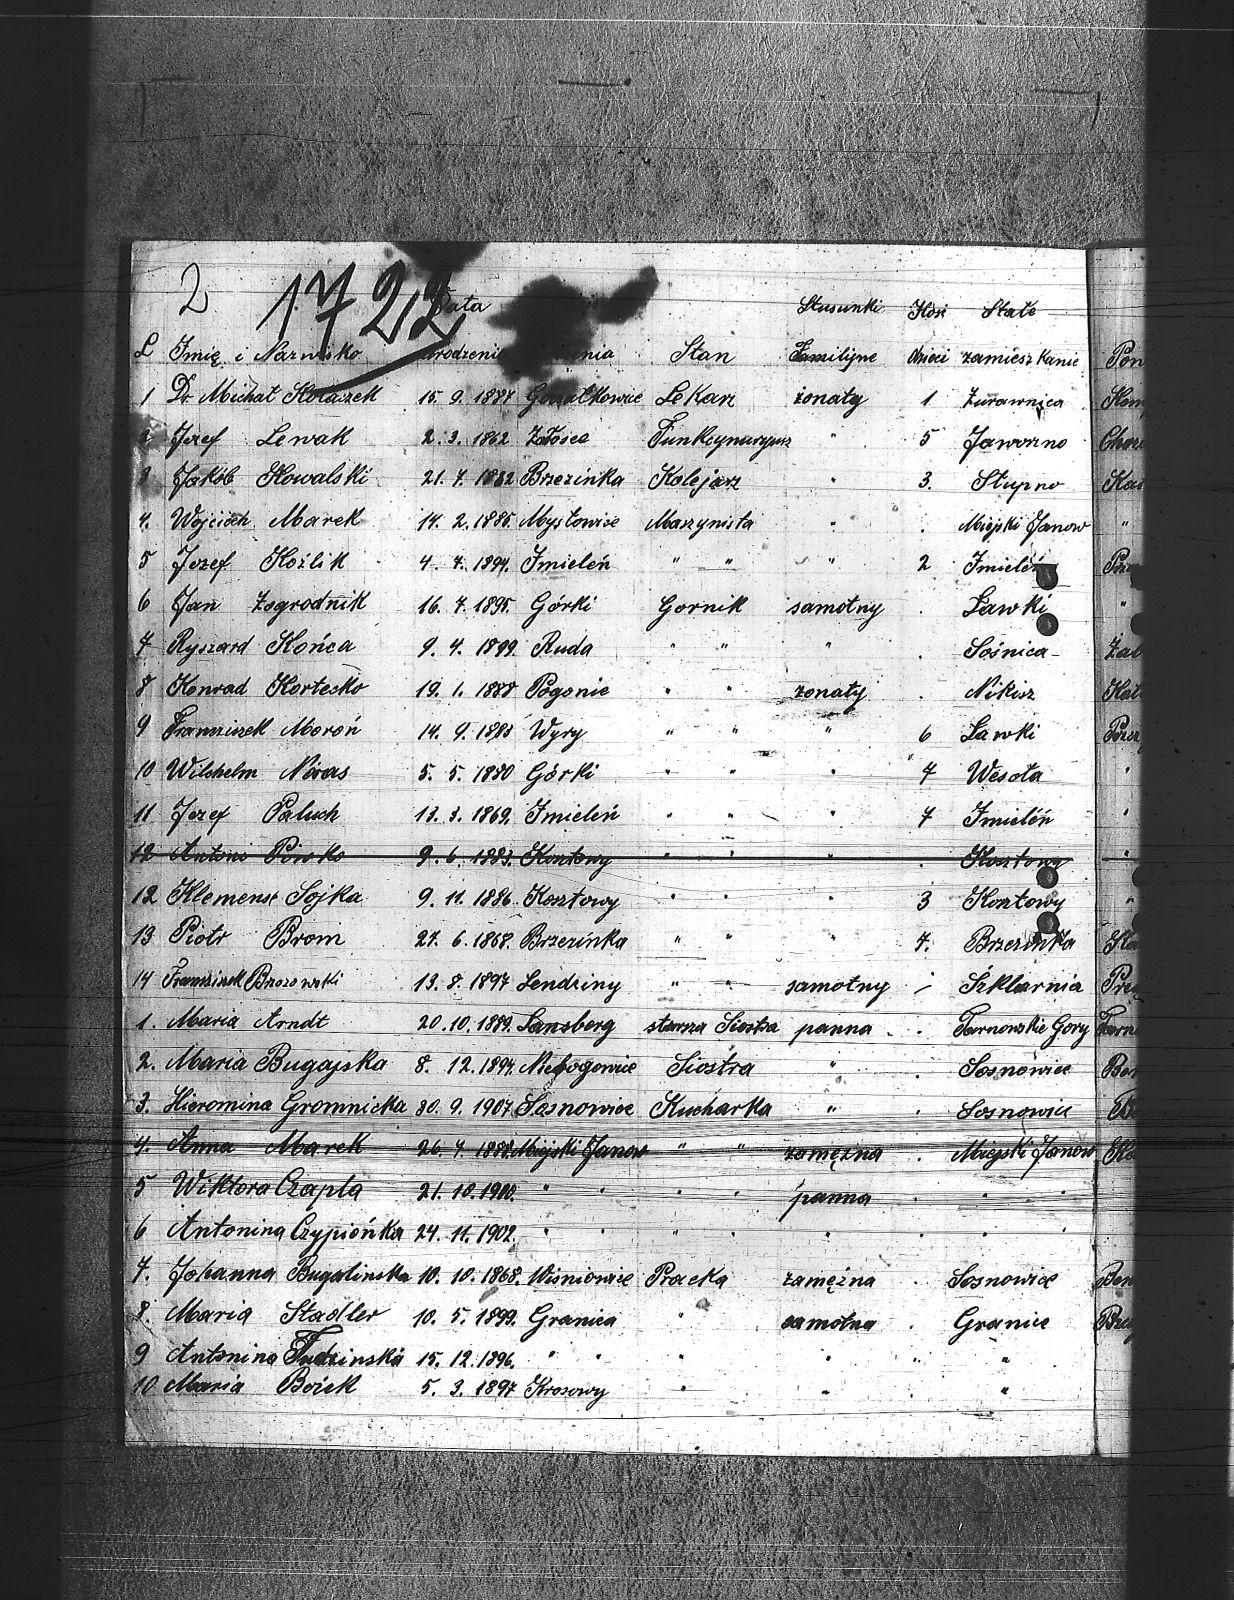 2 1722
Data Stusunki Ilość Stałe
L Imię i Nazwisko urodzenia Stan Familijne dzieci zamieszkanie
1 Dr Michał Kołaczek 15. 9. 1887 Lekarz żonaty 1 Żurawnica
2 Jozef Lewak 2. 3. 1862 Załosce " 5 Jaworzno
3 Jakób Kowalski 21. 7. 1882 Brzezinka Kolejarz " 3. Słupno
4. Wojciech Marek 14. 2. 1885. Mysłowice Maszynista " . Miejski Janow "
5 Jozef Koźlik 4. 7. 1894. Imieleń " " " 2 Imieleń
6 Jan Zogrodnik 16. 7. 1895. Górki Gornik samotny . Ławki "
7 Ryszard Końca 9. 4. 1899. Ruda " " " . Sośnica
8 Konrad Kortecko 19. 1. 1888 Pogonie " " zonaty . Nikisz
9 Franziszek Moroń 14. 9. 1885 Wyry " " " 6 Lawki
10 Wilshelm Niwas 5. 5. 1880 Górki " " " 7 Wesoła "
11 Jozef Paluch 13. 3. 1869. Imieleń " " " 7 Imieleń "
12 Antoni 9. 6. 1883. Kosztowy " " " . Kosztowy "
12 Klemens Sojka 9. 11. 1886 Kosztowy " " 3 Kosztowy "
13 Piotr Brom 27. 6. 1868. Brzezinka " " " 7. Brzezinka
14 Franziszek Brzozowski 13. 8. 1897 Lendziny " " samotny / Szklarnia
1. Maria Arndt 20. 10. 1889. Lansberg starsza Siostra panna . Tarnowskie Gory
2. Maria Bugajska 8. 12. 1894. Siostra " . Sosnowiec
3. Hieromina Gromnicka 30. 9. 1907 Sosnowiec Kucharka " . Sosnowiec
4. Anna Marek 26. 7. 1888. Miejski Janow " " zamężna . Miejski Janow
5 Wiktora Czapla 21. 10. 1900. " " " " panna . " "
6 Antonina Czypionka 24. 11. 1902. " " " " " . " "
7. Johanna Bugalinska 10. 10. 1868. Wisniowiec Pracka zamężna . Sosnowiec
8. Maria Stadler 10. 5. 1899. Granica " samotna . Granice
9 Antonina Tudzinska 15. 12. 1896. " " " " " "
10 Maria Bożek 5. 3. 1897 Krosowy " " . "